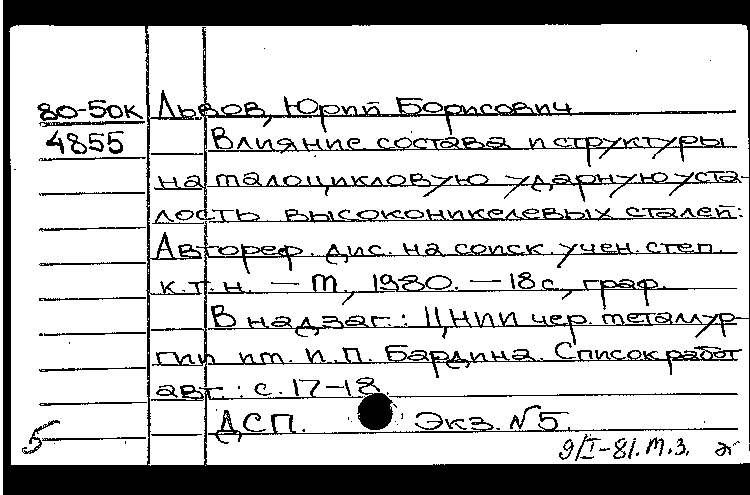 80-50к Львов, Юрий Борисович
4855 Влияние состава и структуры
на малоцикловую ударную уста-
лость высоконикелевых сталей:
Автореф. дис. на соиск. учен. степ.
к.т.н. — М., 1980. — 18 с., граф.
В надзаг.: ЦНИИ чер. металлур-
гии им. И.П. Бардина. Список работ
авт.: с. 17-18
ДСП. Экз. №5.
5
9/I-81. М.З.